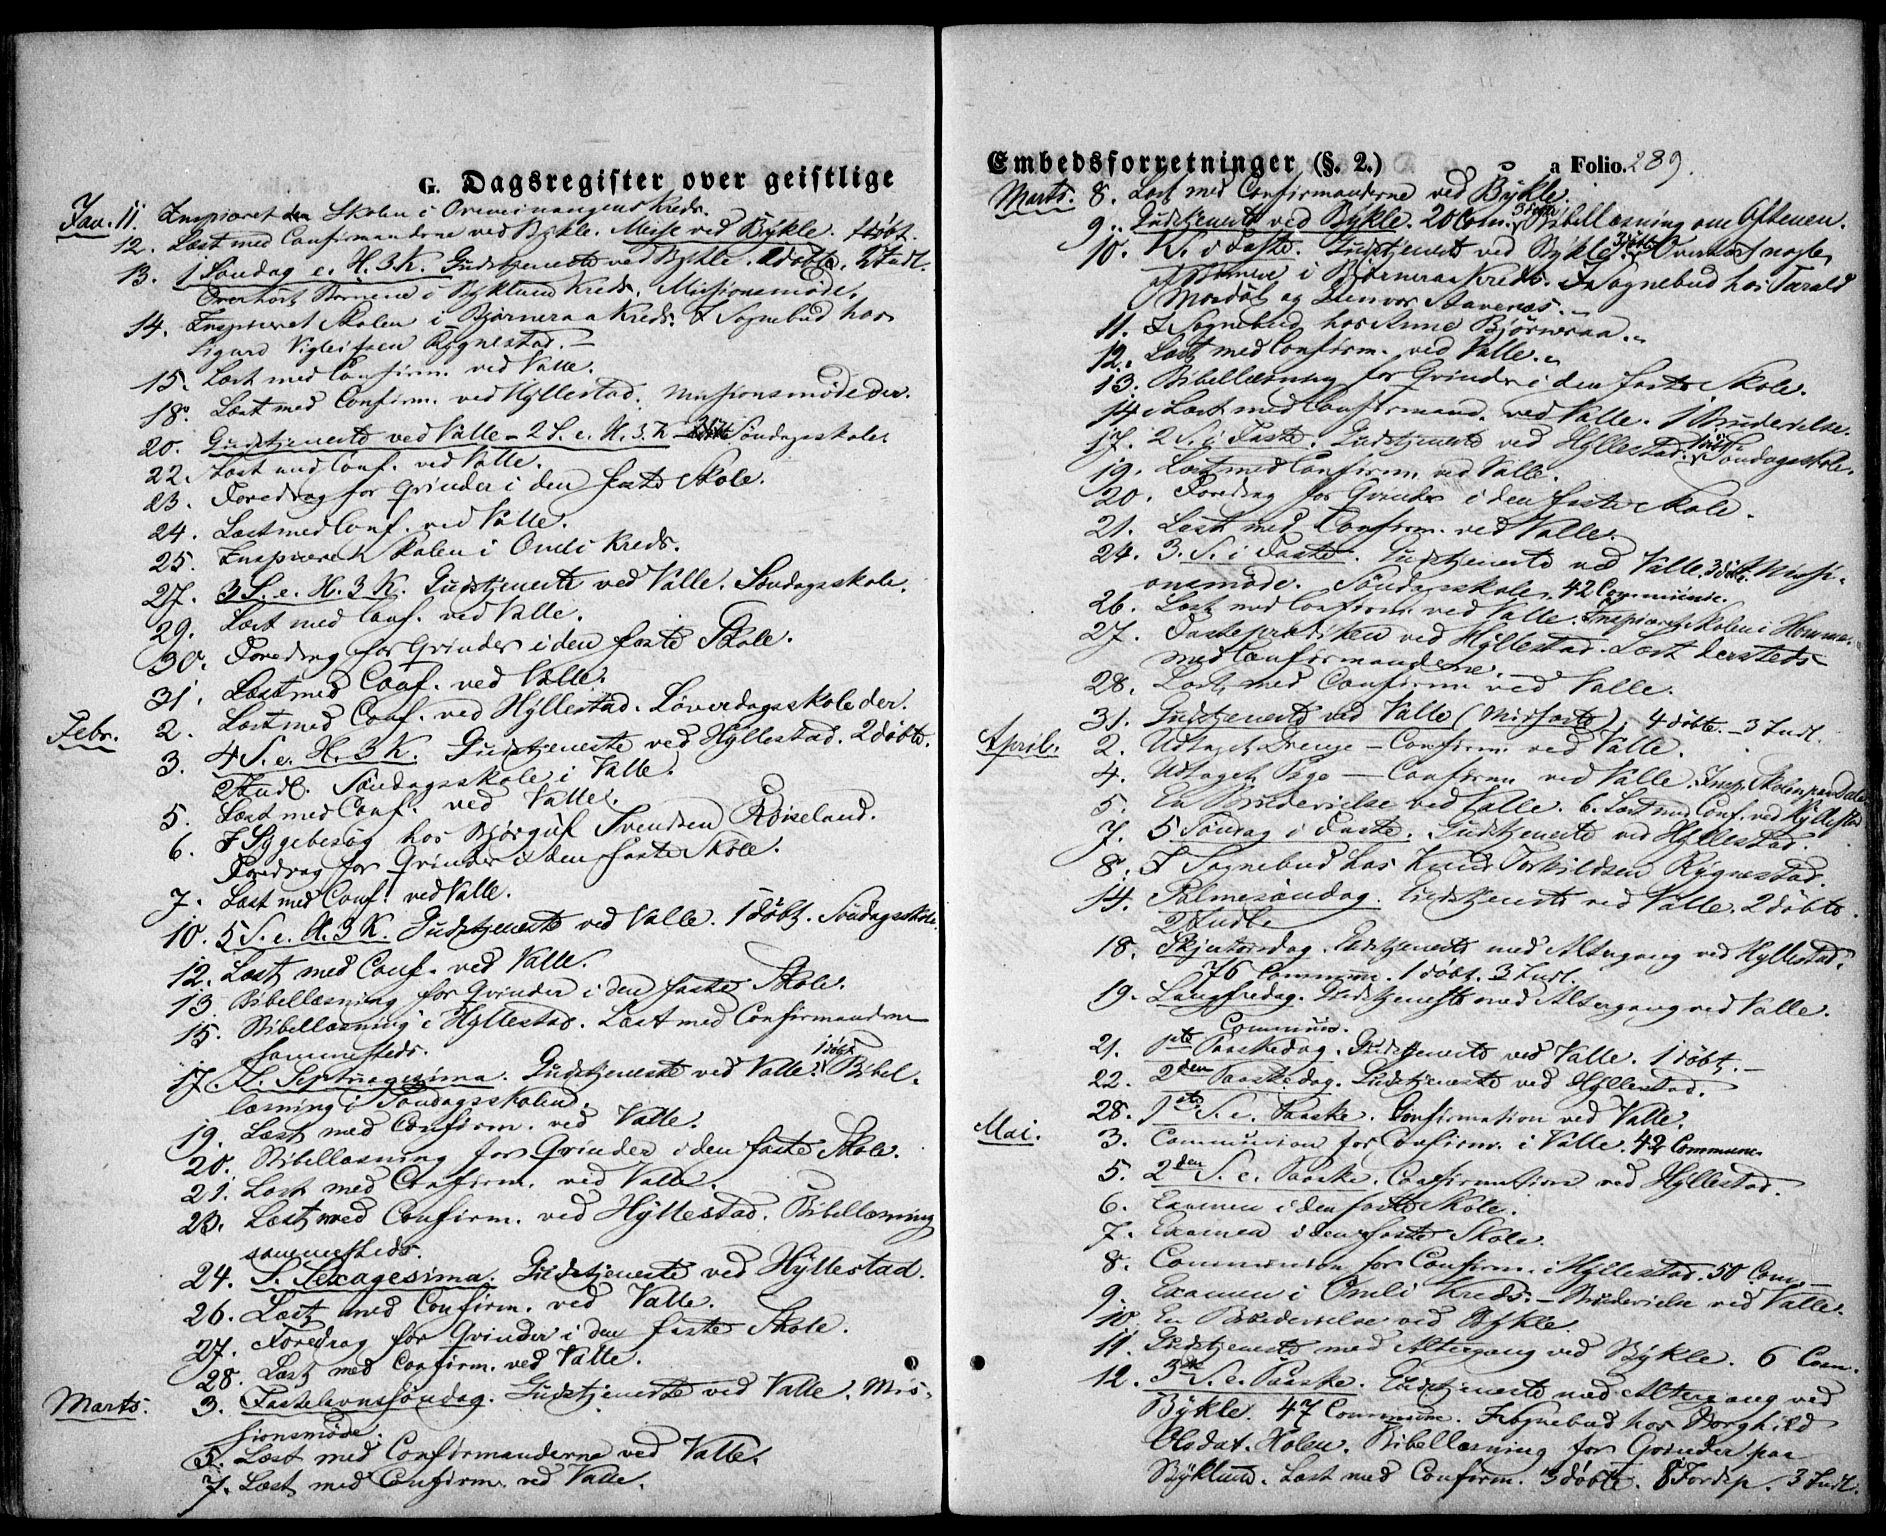 G. Dagsregister over geistlige
Jan. 11. Inspiceret den Skolen i Kreds.
12. Læst med Confirmanderne ved Bykle. Messe ved Bykle. 1 døbt.
13. 1 Søndag e. H. 3 K. Gudstjeneste ved Bykle. 2 døbte. 2 Indl.
Overhørt Børnene i Byklum Kreds. Missionsmøde.
14. Inspiceret Skolen i Bjørneraa Kreds. I Sognebud hos
Sigurd Vigleifsen Rygnestad. –
15. Læst med Confirm. ved Valle.
18. Læst med Confirm. ved Hyllestad. Missionsmøde der.
20. Gudstjeneste ved Valle – 2 S. e. H. 3 K – Søndagsskole.
22. Læst med Conf. ved Valle.
23. Foredrag for Qvinder i den faste Skole.
24. Læst med Conf. ved Valle.
25. Inspiceret Skolen i Omli Kreds.
27. 3 S. e. H. 3 K. Gudstjeneste ved Valle. Søndagsskole.
29. Læst med Conf. ved Valle.
30. Foredrag for Qvinder i den faste Skole.
31. Læst med Conf. ved Valle.
Febr. 2. Læst med Conf. ved Hyllestad. Løverdagsskole der.
3. 4 S. e. H. 3 K. Gudstjeneste ved Hyllestad. 2 døbte.
2 Indl. Søndagsskole i Valle.
5. Læst med Conf. ved Valle.
6. I Sygebesøg hos Bjørguf Svendsen Røiseland.
Foredrag for Qvinder i den faste Skole.
7. Læst med Conf. ved Valle.
10. 5 S. e. H. 3 K. Gudstjeneste ved Valle. 1 døbt. Søndagsskole.
12. Læst med Conf. ved Valle.
13. Bibellæsning for Qvinder i den faste Skole.
15. Bibellæsning i Hyllestad. Læst med Confirmanderne
sammesteds.
17. S. Septuagesima. Gudstjeneste ved Valle. 1 døbt. Bibel-
læsning i Søndagsskolen.
19. Læst med Confirm. ved Valle.
20. Bibellæsning for Qvinder i den faste Skole.
21. Læst med Confirm. ved Valle.
23. Læst med Confirm. ved Hyllestad. Bibellæsning
sammesteds.
24. S. Sexagesima. Gudstjeneste ved Hyllestad.
26. Læst med Confirm. ved Valle.
27. Foredrag for Qvinder i den faste Skole.
28. Læst med Confirm. ved Valle.
Marts. 3. Fastelavnssøndag. Gudstjeneste ved Valle. Mis-
sionsmøde.
5. Læst med Confirmanderne ved Valle.
7. Læst med Confirm. ved Valle.
Embedsforretninger (§. 2.) a Folio. 289.
Marts. 8. Læst med Confirmanderne ved Bykle.
9. Gudstjeneste ved Bykle. 20 Com. Bibellæsning om Aftenen.
10. 1 S. i Faste. Gudstjeneste ved Bykle. 3 døbte. Overhørt nogle
af Børnene i Bjørneraa Kreds. I Sognebud hos Tarald
Mosdøl og Gunvor Stavenæs. –
11. I Sognebud hos Anne Bjørneraa. –
12. Læst med Confirm. ved Valle. –
13. Bibellæsning for Qvinder i den faste Skole.
14. Læst med Confirmand. ved Valle. 1 Brudevielse.
17. 2 S. i Faste. Gudstjeneste ved Hyllestad. 1 døbt. Søndagsskole.
19. Læst med Confirm. ved Valle.
20. Foredrag for Qvinder i den faste Skole.
21. Læst med Confirm. ved Valle.
24. 3. S. i Faste. Gudstjeneste ved Valle. 3 døbte. Missi-
onsmøde. Søndagsskole. 42 Communic.
26. Læst med Confirm. ved Valle. Inspiceret Skolen i Homme.
27. Fasteprædiken ved Hyllestad. Læst dersteds
med Confirmanderne.
28. Læst med Confirm. ved Valle.
31. Gudstjeneste ved Valle (Midfaste). 4 døbte. – 3 Indl.
April. 2. Udtaget Drenge – Confirm. ved Valle.
4. Udtaget Pige – Confirm ved Valle. Insp. Skolen paa Dale
5. En Brudevielse ved Valle. 6. Læst med Conf. ved Hyllestad
7. 5 Søndag i Faste. Gudstjeneste ved Hyllestad.
8. I Sognebud hos Knud Torkildsen Rygnestad.
14. Palmesøndag. Gudstjeneste ved Valle. 2 døbte.
2 Indl.
18. Skjærtorsdag. Gudstjeneste med Altergang ved Hyllestad.
76 Commun. 1 døbt. 3 Indl.
19. Langfredag. Gudstjeneste med Altergang ved Valle.
Commun.
21. 1ste Paaskedag. Gudstjeneste ved Valle. 1 døbt. –
22. 2den Paaskedag. Gudstjeneste ved Hyllestad.
28. 1ste S. e. Paaske. Confirmation ved Valle.
Mai. 3. Communion for Confirm. i Valle. 42 Commun.
5. 2den S. e. Paaske. Confirmation ved Hyllestad.
6. Examen i den faste Skole.
7. Examen i den faste Skole.
8. Communion for Confirm. i Hyllestad. 50 Com. –
9. Examen i Omli Kreds. – Brudevielse ved Valle.
10. En Brudevielse ved Bykle.
11. Gudstjeneste med Altergang ved Bykle. 6 Com.
12. 3die S. e. Paaske. Gudstjeneste med Altergang ved
Bykle. 47 Commun. I Sognebud hos Borghild
Olsdat. Holen. Bibellæsning for Qvinder paa
Byklum. Læst med Confirm. 3 døbte. 8 Fordsp. 3 Indl.